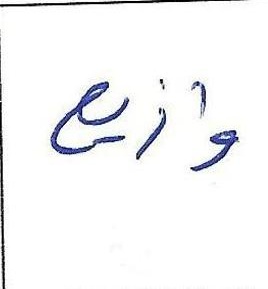 وازيع